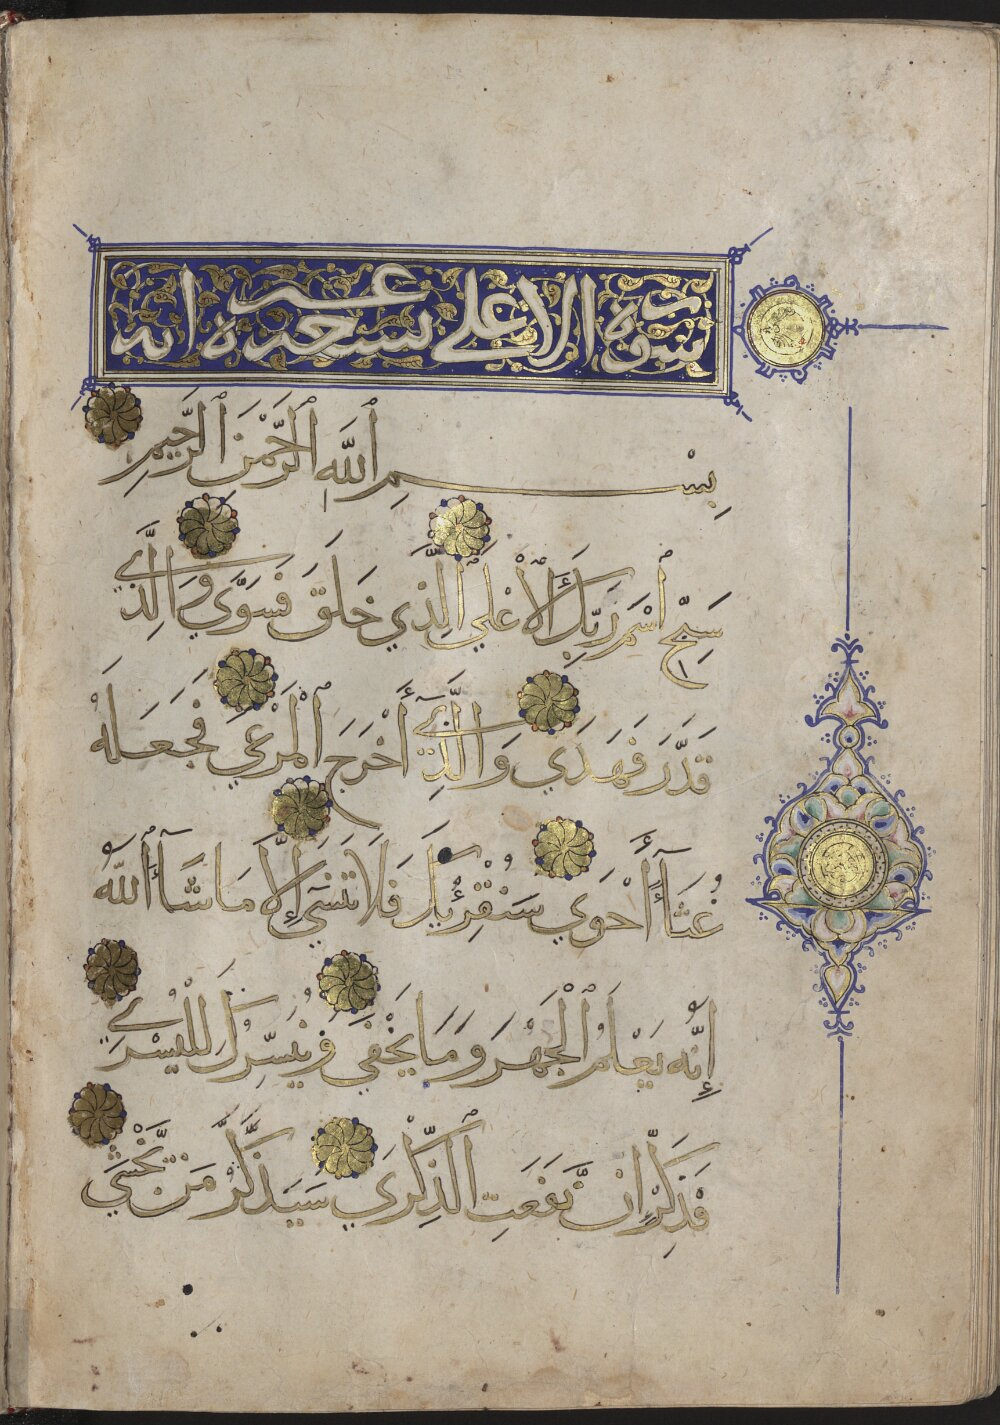 سورة الاعلى تسعة عشر اية
بِسْمِ ٱللَّهِ ٱلرَّحْمَٰنِ ٱلرَّحِيمِ
سَبِّحِ ٱسْمَ رَبِّكَ ٱلْأَعْلَى ٱلَّذِي خَلَقَ فَسَوَّى وَٱلَّذِي
قَدَّرَ فَهَدَى وَٱلَّذِي أَخْرَجَ ٱلْمَرْعَى فَجَعَلَهُ
غُثَاءً أَحْوَى سَنُقْرِئُكَ فَلَا تَنْسَى إِلَّا مَا شَاءَ ٱللَّهُ
إِنَّهُ يَعْلَمُ ٱلْجَهْرَ وَمَا يَخْفَى وَنُيَسِّرُكَ لِلْيُسْرَى
فَذَكِّرْ إِن نَّفَعَتِ ٱلذِّكْرَى سَيَذَّكَّرُ مَن يَّخْشَى